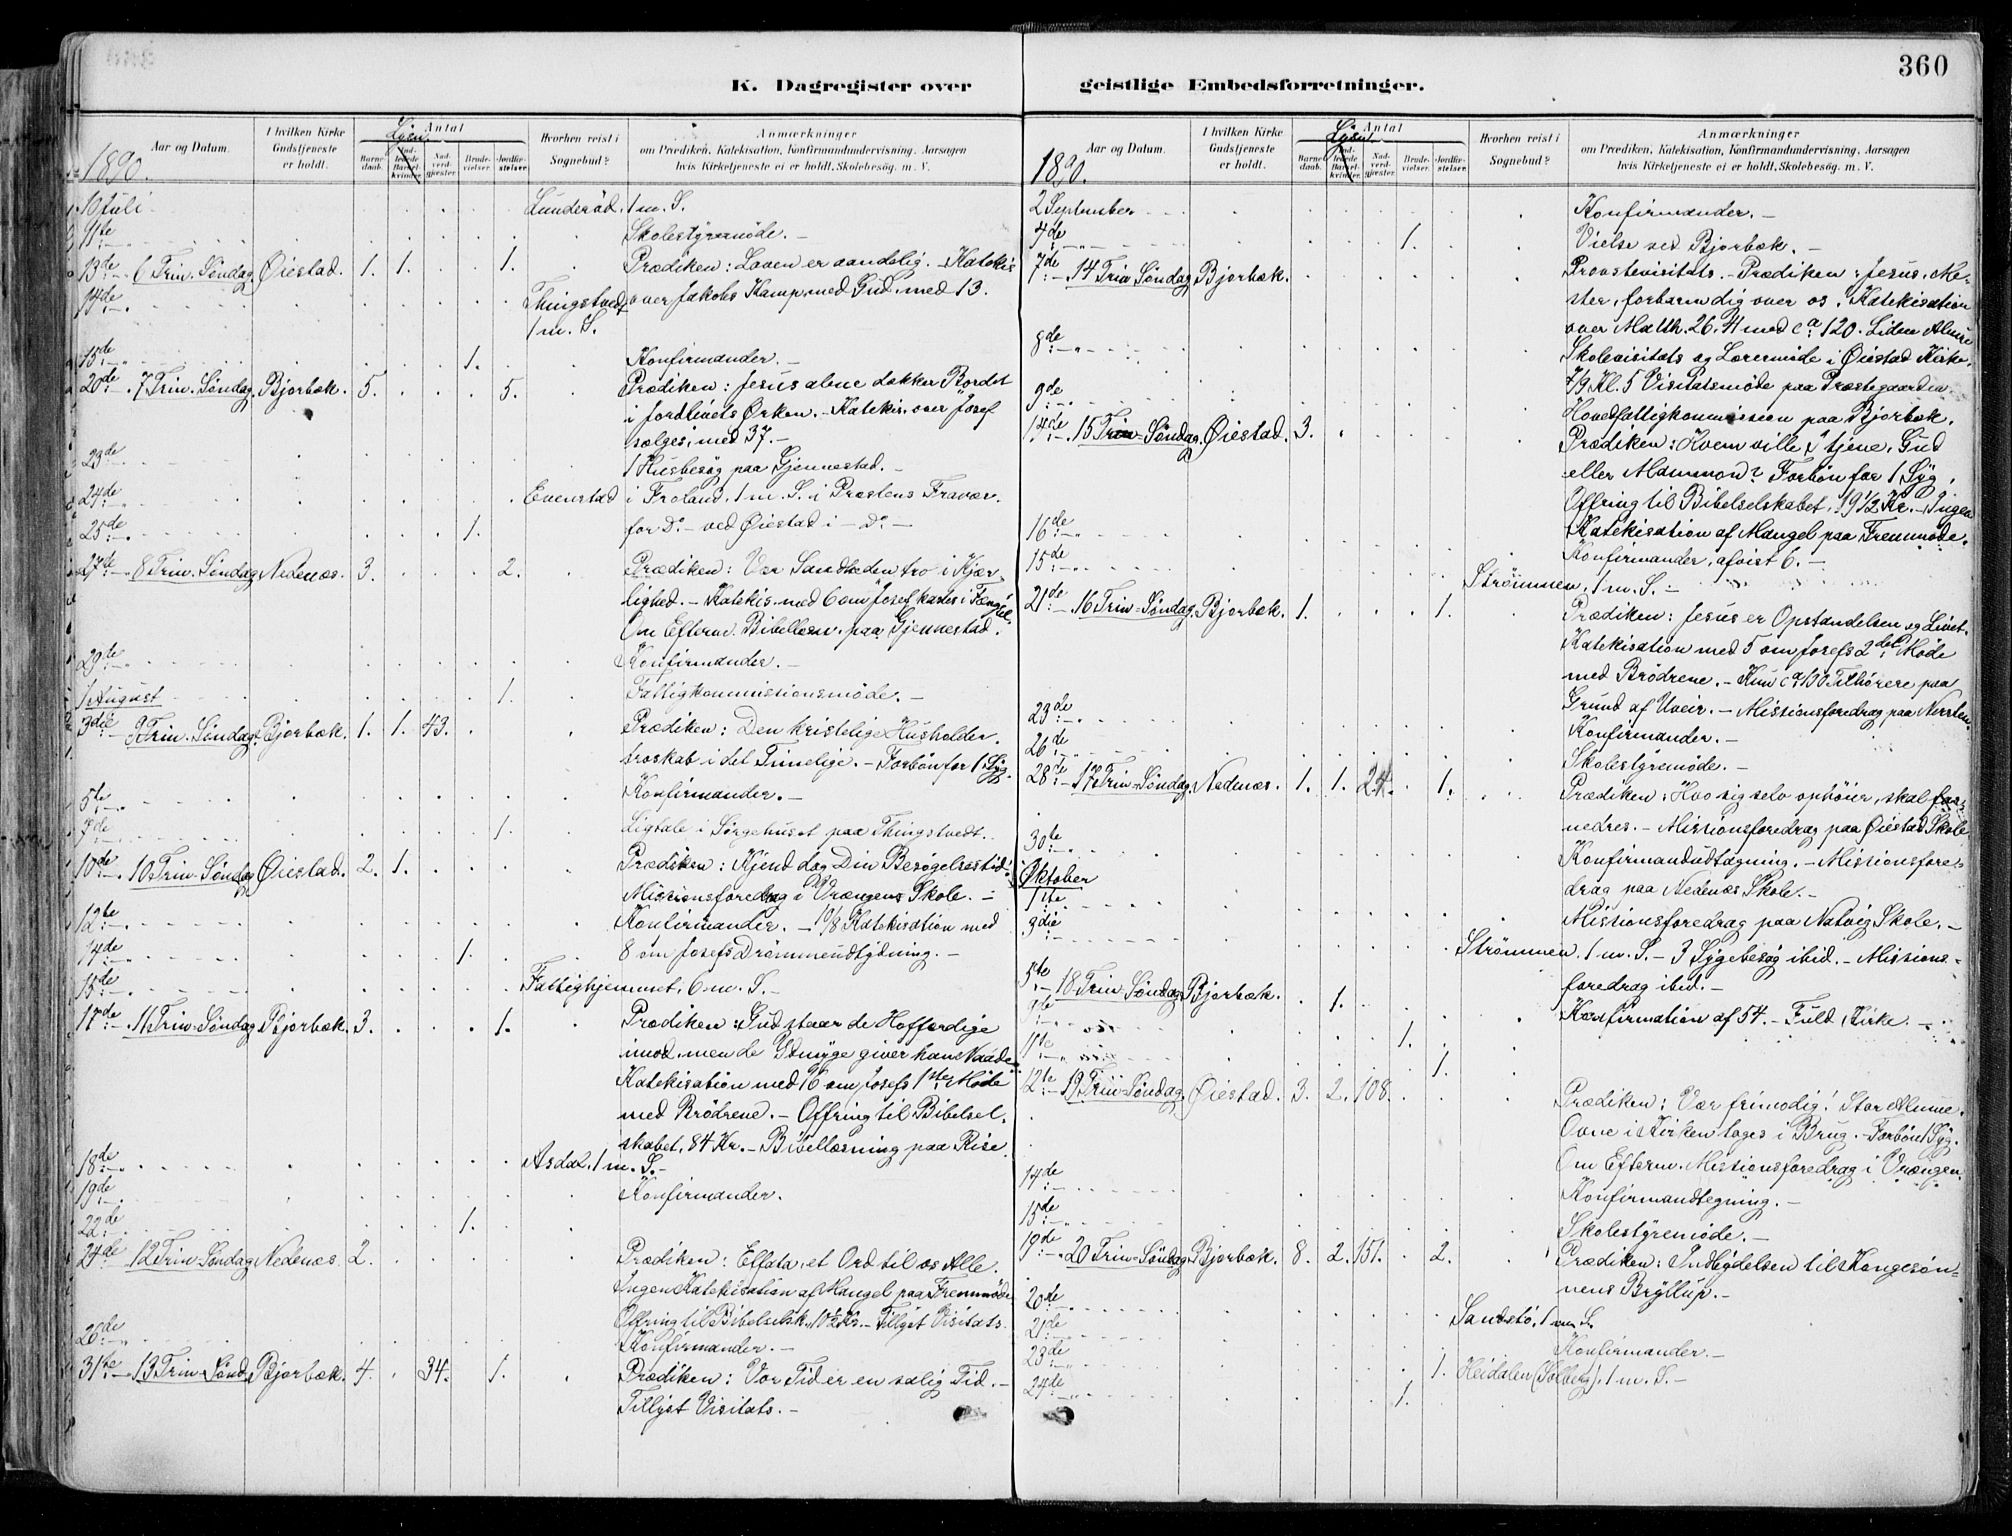 360
K. Dagregister over
Aar og Datum.
I hvilken Kirke Gudstjeneste er holdt.
Antal
Barnedaab.
Indledede Barselkvinder.
Nadverdgjester.
Brudevielser.
Jordfæstelser.
Hvorhen reist i Sognebud?
Anmærkninger
om Prædiken, Katekisation, Konfirmandundervisning, Aarsagen
hvis Kirketjeneste ei er holdt, Skolebesøg m. V.
1890.
10 Juli Lunderød. 1 m. S.
11te Skolestyremøde.
13de 6 Trin. Søndag Øiestad. 1. 1. 1. Prædiken: Loven er aandelig. - Katekis
over Jakobs Kamp med Gud, med 13.
14de Thingstvedt
1 m. S.
15de 1. Konfirmander. -
20de 7 Trin. Søndag Bjorbæk. 5. 5. Prædiken: Jesus alene dækker Bordet
i Jordlivets Ørken. - Katekis. over Josef
sælges, med 37. -
23de 1 Husbesøg paa Gjennestad. -
24de Evenstad i Froland, 1 m. S. i Præstens Fravær.
25de 1. for Do. - ved Øiestad i - Do. -
27de 8 Trin. Søndag Nedenæs. 3. 2. Prædiken: Vær Sandheden tro i Kjær
lighed. - Katekis. med 6 om Josef kastes i Fængsel.
Om Efterm. Bibellæsn. paa Gjennestad.
29te Konfirmander. -
1 August 1. Fattigkommissionsmøde. -
3die 9 Trin. Søndag Bjorbæk. 1. 1. 43. Prædiken: Den kristelige Husholder
troskab i det Timelige. - Forbøn for 1 Syg.
5te Konfirmander. -
7de 1. Ligtale i Sørgehuset paa Thingstvedt.
10de 10 Trin. Søndag Øiestad. 2. 1. Prædiken: Kjend dog Din Besøgelsestid!
Missionsforedrag i Vrængens Skole. -
12te Konfirmander. - 10/8 Katekisation med
14de 1. 8 om Josefs Drømmeudtydning. -
15de Fattighjemmet. 6 m. S. -
17de 11 Trin. Søndag Bjorbæk. 3. 1. Prædiken: Gud staar de Hoffærdige
imod, men de Ydmyge giver han Naade
Katekisation med 16 om Josefs 1ste Møde
med Brødrene. - Offring til Bibelsel
skabet, 84 Kr. - Bibellæsning paa Rise.
18de Asdal, 1 m. S. -
19de Konfirmander.
22de 1.
24de 12 Trin. Søndag Nedenæs. 2. Prædiken: Effata, et Ord til os Alle.
Ingen Katekisation af Mangel paa Fremmøde
Offring til Bibelselsk. 10½ Kr. - Tillyst Visitats.
26de Konfirmander. -
31te 13 Trin. Sønd. Bjorbæk. 4. 34. 1. Prædiken: Vor Tid er en salig Tid. -
Tillyst Visitats. -
geistlige Embedsforretninger.
Aar og Datum.
I hvilken Kirke Gudstjeneste er holdt.
Antal
Barnedaab.
Indledede Barselkvinder.
Nadverdgjester.
Brudevielser.
Jordfæstelser.
Hvorhen reist i Sognebud?
Anmærkninger
om Prædiken, Katekisation, Konfirmandundervisning, Aarsagen
hvis Kirketjeneste ei er holdt, Skolebesøg m. V.
1890.
2 September Konfirmander. -
4de 1. Vielse ved Bjorbæk. -
7de 14 Trin. Søndag Bjorbæk. Provstevisitats. - Prædiken: Jesus, Me-
ster, forbarm dig over os. Katekisation
over Matth. 26, 41 med ca 120. Liden Almue
8de Skolevisitats og Lærermøde i Øiestad Kirke.
7/9 Kl. 5 Visitatsmøde paa Præstegaarden.
9de Hovedfattigkommission paa Bjorbæk.
14de 15 Trin. Søndag Øiestad. 3. Prædiken: Hvem ville I tjene, Gud
eller Mammon? Forbøn for 1 Syg.
Offring til Bibelselskabet, 19 1/2 Kr. - Ingen
16de Katekisation af Mangel paa Fremmøde.
15de Konfirmander, afvist 6. -
Strømmen, 1 m. S. -
21de 16 Trin. Søndag Bjorbæk. 1. 1. Prædiken: Jesus er Opstandelsen og Livet.
Katekisation med 5 om Josefs 2det Møde
med Brødrene. - Kun ca 130 Tilhørere paa
23de Grund af Uveir. - Missionsforedrag paa
26de Konfirmander. -
Skolestyremøde. -
28de 17 Trin. Søndag Nedenæs. 1. 1. 24. 1. Prædiken: Hvo sig selv ophøier, skal for-
nedres. - Missionsforedrag paa Øiestad Skole
30te Konfirmandudtagning. - Missionsfore-
drag paa Nedenæs Skole. -
Oktober
1ste Missionsforedrag paa Natvig Skole. -
3die Strømmen 1 m. S. - 3 Sygebesøg ibid. - Missions-
foredrag ibid. -
5te 18 Trin. Søndag Bjorbæk. 1. Konfirmation af 54. - Fuld Kirke. -
9de 1.
11te 1.
12te 19 Trin. Søndag Øiestad. 3. 2. 108. Prædiken: Vær frimodig! Stor Almue.
Ovne i Kirken tages i Brug. - Forbøn 1 Syg.
Om Efterm. Missionsforedrag i Vrængen
14de Konfirmandtegning. -
15de Skolestyremøde. -
19de 20 Trin. Søndag Bjorbæk. 8. 2. 151. 2. Prædiken: Indbydelsen til Kongesøn-
nens Bryllup. -
20de Sandstø, 1 m. S.
21de Konfirmander. -
23de 1. Heidalen (Solberg), 1 m. S. -
24de 1.